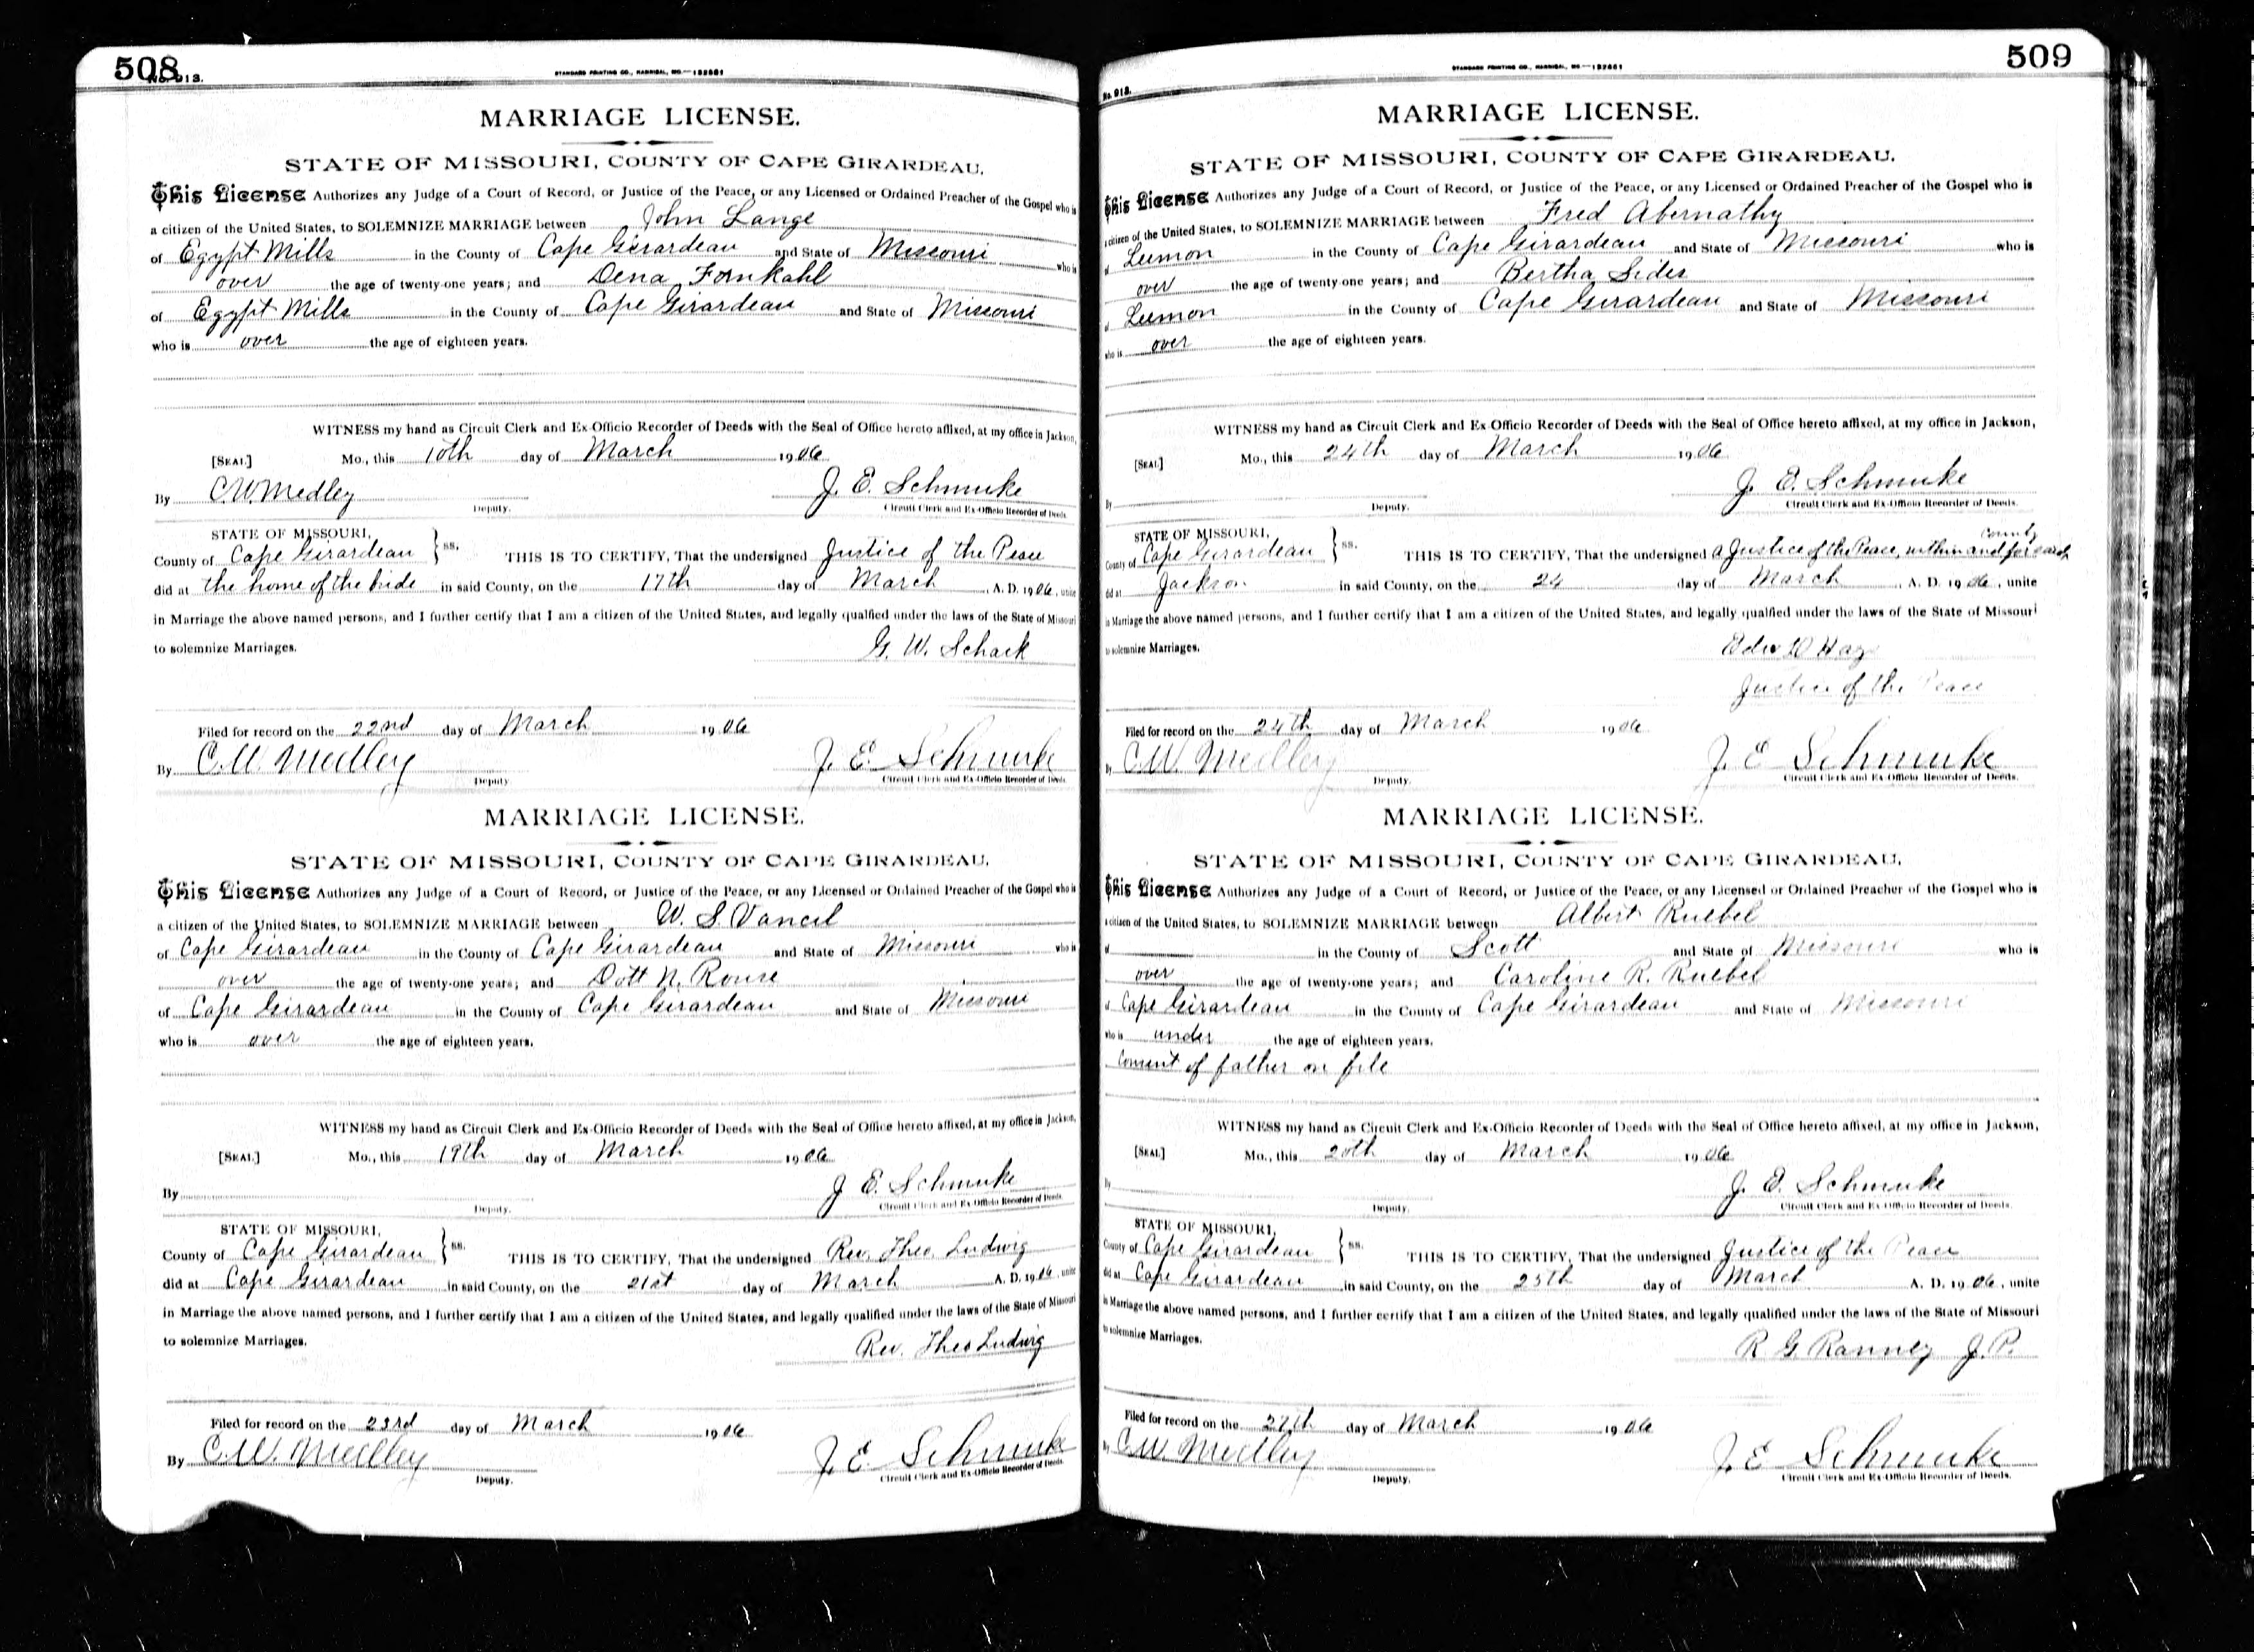 508
No. 913.
STANDARD PRINTING CO., HANNIBAL, MO.—132661
MARRIAGE LICENSE.
STATE OF MISSOURI, COUNTY OF CAPE GIRARDEAU.
This License Authorizes any Judge of a Court of Record, or Justice of the Peace, or any Licensed or Ordained Preacher of the Gospel who is
a citizen of the United States, to SOLEMNIZE MARRIAGE between John Lange
of Egypt Mills in the County of Cape Girardeau and State of Missouri who is
over the age of twenty-one years; and Dena Fornkahl
of Egypt Mills in the County of Cape Girardeau and State of Missouri
who is over the age of eighteen years.
WITNESS my hand as Circuit Clerk and Ex-Officio Recorder of Deeds with the Seal of Office hereto affixed, at my office in Jackson,
[SEAL] Mo., this 10th day of March 1906
By C.W. Medley Deputy. J. E. Schmuke
Circuit Clerk and Ex-Officio Recorder of Deeds.
STATE OF MISSOURI,
County of Cape Girardeau } ss. THIS IS TO CERTIFY, That the undersigned Justice of the Peace
did at the home of the bride in said County, on the 17th day of March A. D. 1906, unite
in Marriage the above named persons, and I further certify that I am a citizen of the United States, and legally qualified under the laws of the State of Missouri
to solemnize Marriages.
G. W. Schack
Filed for record on the 22nd day of March 1906
By C.W. Medley Deputy. J. E. Schmuke
Circuit Clerk and Ex-Officio Recorder of Deeds.
MARRIAGE LICENSE.
STATE OF MISSOURI, COUNTY OF CAPE GIRARDEAU.
This License Authorizes any Judge of a Court of Record, or Justice of the Peace, or any Licensed or Ordained Preacher of the Gospel who is
a citizen of the United States, to SOLEMNIZE MARRIAGE between W. S Vancil
of Cape Girardeau in the County of Cape Girardeau and State of Missouri who is
over the age of twenty-one years; and Dott N. Rouse
of Cape Girardeau in the County of Cape Girardeau and State of Missouri
who is over the age of eighteen years.
WITNESS my hand as Circuit Clerk and Ex-Officio Recorder of Deeds with the Seal of Office hereto affixed, at my office in Jackson,
[SEAL] Mo., this 19th day of March 1906
By Deputy. J E. Schmuke
Circuit Clerk and Ex-Officio Recorder of Deeds.
STATE OF MISSOURI,
County of Cape Girardeau } ss. THIS IS TO CERTIFY, That the undersigned Rev. Theo Ludwig
did at Cape Girardeau in said County, on the 21st day of March A. D. 1906, unite
in Marriage the above named persons, and I further certify that I am a citizen of the United States, and legally qualified under the laws of the State of Missouri
to solemnize Marriages.
Rev. Theo Ludwig
Filed for record on the 23rd day of March 1906
By C.W. Medley Deputy. J. E. Schmuke
Circuit Clerk and Ex-Officio Recorder of Deeds.
509
No. 913.
STANDARD PRINTING CO., HANNIBAL, MO.—132661
MARRIAGE LICENSE.
STATE OF MISSOURI, COUNTY OF CAPE GIRARDEAU.
This License Authorizes any Judge of a Court of Record, or Justice of the Peace, or any Licensed or Ordained Preacher of the Gospel who is
a citizen of the United States, to SOLEMNIZE MARRIAGE between Fred Abernathy
of Leemon in the County of Cape Girardeau and State of Missouri who is
over the age of twenty-one years; and Bertha Sides
of Leemon in the County of Cape Girardeau and State of Missouri
who is over the age of eighteen years.
WITNESS my hand as Circuit Clerk and Ex-Officio Recorder of Deeds with the Seal of Office hereto affixed, at my office in Jackson,
[SEAL] Mo., this 24th day of March 1906
By Deputy. J. E. Schmuke
Circuit Clerk and Ex-Officio Recorder of Deeds.
STATE OF MISSOURI, County
County of Cape Girardeau } ss. THIS IS TO CERTIFY, That the undersigned a Justice of the Peace, within and for said
did at Jackson in said County, on the 24 day of March A. D. 1906, unite
in Marriage the above named persons, and I further certify that I am a citizen of the United States, and legally qualified under the laws of the State of Missouri
to solemnize Marriages.
Edw D Hay
Justice of the Peace
Filed for record on the 24th day of March 1906
By C.W. Medley Deputy. J. E Schmuke
Circuit Clerk and Ex-Officio Recorder of Deeds.
MARRIAGE LICENSE.
STATE OF MISSOURI, COUNTY OF CAPE GIRARDEAU.
This License Authorizes any Judge of a Court of Record, or Justice of the Peace, or any Licensed or Ordained Preacher of the Gospel who is
a citizen of the United States, to SOLEMNIZE MARRIAGE between Albert Ruebel
of in the County of Scott and State of Missouri who is
over the age of twenty-one years; and Caroline R. Ruebel
of Cape Girardeau in the County of Cape Girardeau and State of Missouri
who is under the age of eighteen years.
Consent of father on file
WITNESS my hand as Circuit Clerk and Ex-Officio Recorder of Deeds with the Seal of Office hereto affixed, at my office in Jackson,
[SEAL] Mo., this 20th day of March 1906
By Deputy. J. E. Schmuke
Circuit Clerk and Ex-Officio Recorder of Deeds.
STATE OF MISSOURI,
County of Cape Girardeau } ss. THIS IS TO CERTIFY, That the undersigned Justice of the Peace
did at Cape Girardeau in said County, on the 25th day of March A. D. 1906, unite
in Marriage the above named persons, and I further certify that I am a citizen of the United States, and legally qualified under the laws of the State of Missouri
to solemnize Marriages.
R G. Ranney J. P.
Filed for record on the 27th day of March 1906
By C.W. Medley Deputy. J. E Schmuke
Circuit Clerk and Ex-Officio Recorder of Deeds.